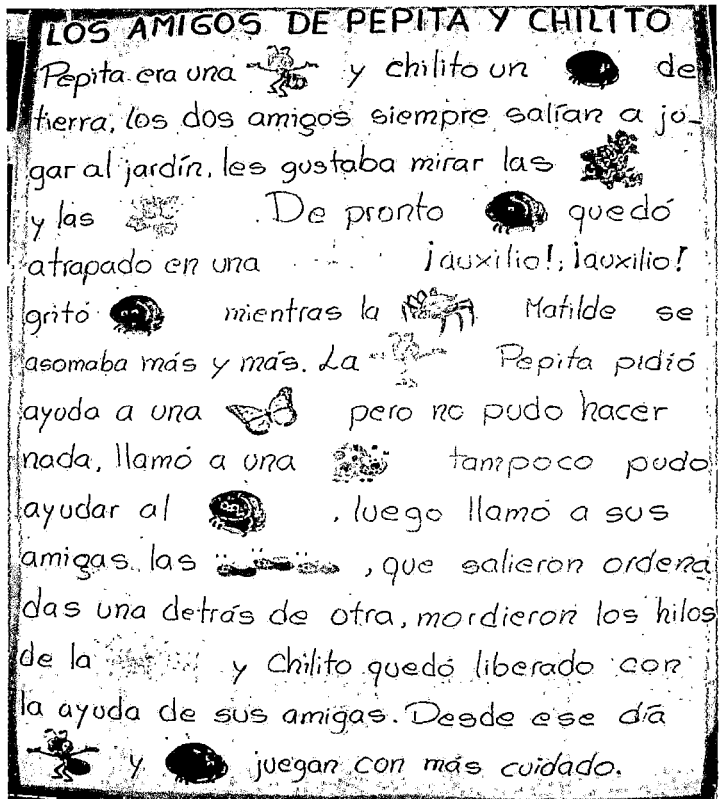 LOS AMIGOS DE PEPITA Y CHILITO
Pepita era una y chilito un de
tierra, los dos amigos siempre salían a jo-
gar al jardín, les gustaba mirar las
y las . De pronto quedó
atrapado en una ¡auxilio!, ¡auxilio!
gritó mientras la Matilde se
asomaba más y más. La Pepita pidió
ayuda a una pero no pudo hacer
nada, llamó a una tampoco pudo
ayudar al , luego llamó a sus
amigas las , que salieron ordena
das una detrás de otra, mordieron los hilos
de la y Chilito quedó liberado con
la ayuda de sus amigas. Desde ese día
y juegan con más cuidado.